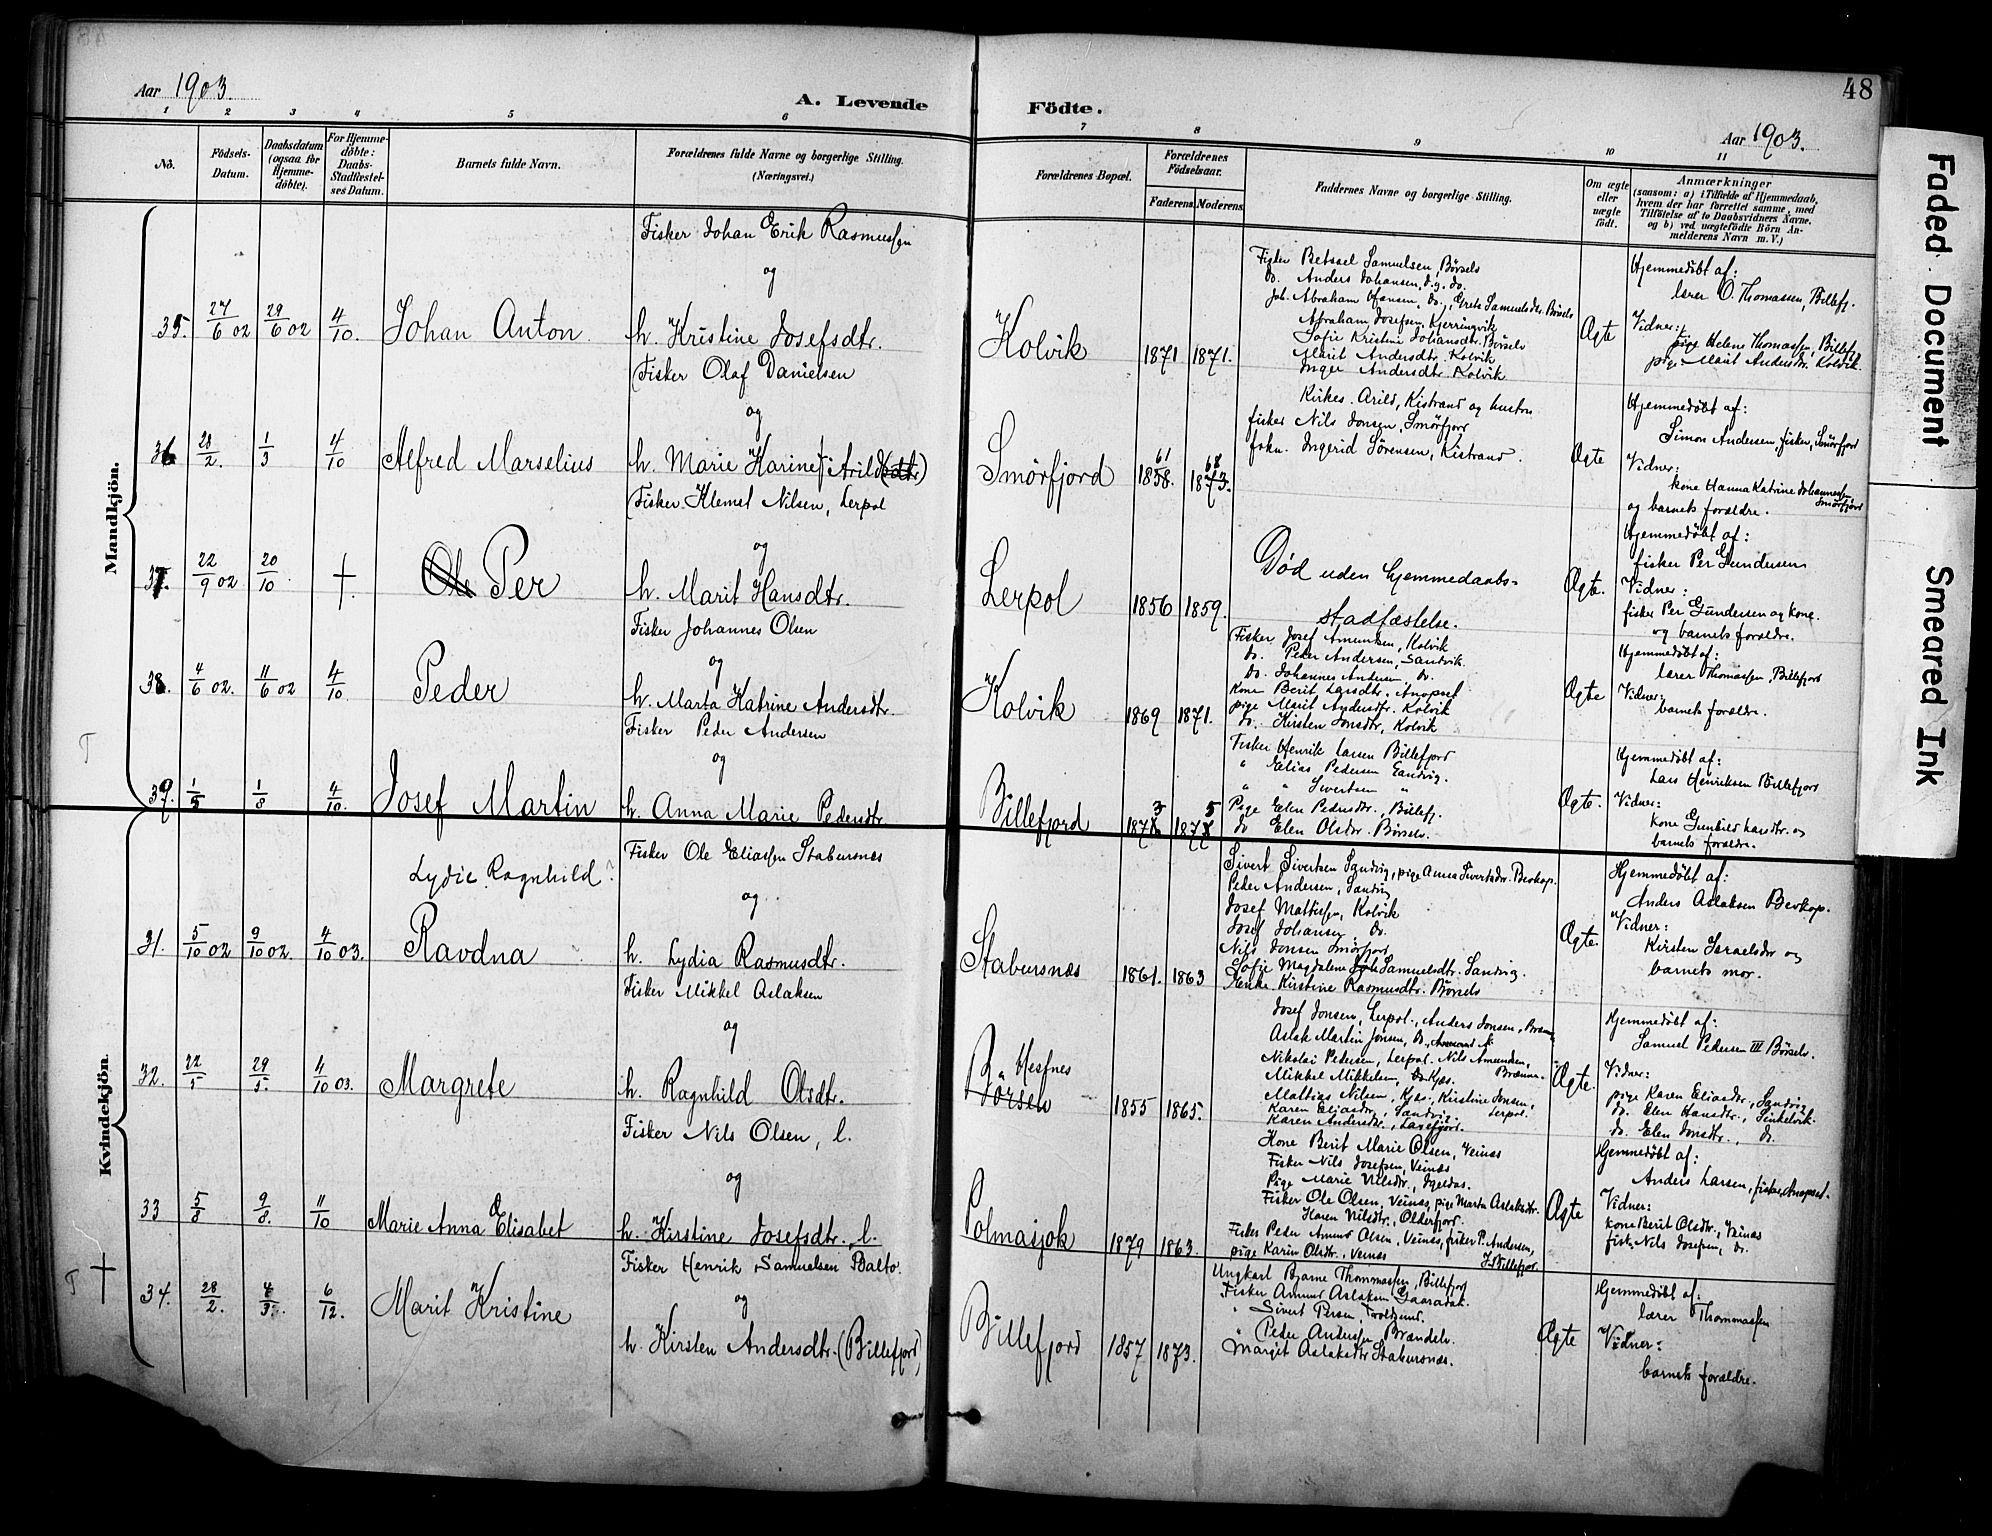 48
Aar 1903.
A. Levende Födte.
Aar 1903.
1 2 3 4 5 6 7 8 9 10 11
No.
Födsels-Datum.
Daabsdatum (ogsaa for Hjemmedöbte).
For Hjemmedöbte: Daabs-Stadfæstelses Datum.
Barnets fulde Navn.
Forældrenes fulde Navne og borgerlige Stilling. (Næringsvei.)
Forældrenes Bopæl.
Forældrenes Födselsaar.
Faderens. Moderens.
Faddernes Navne og borgerlige Stilling.
Om ægte eller uægte født.
Anmærkninger
(saasom: a) i Tilfælde af Hjemmedaab, hvem der har forrettet samme, med Tilföielse af to Daabsvidners Navne. og b) ved uægtefödte Börn Anmelderens Navn m. V.)
Mandkjön.
35. 27/6 02 29/6 02 4/10. Johan Anton.
Fisker Johan Erik Rasmussen
og
h. Kristine Josefsdtr.
Kolvik 1871 1871.
Fisker Betsael Samuelsen, Börsels
do. Anders Johansen, d.y. do.
Abraham Josefsen, Kjerringvik
Sofie Kristine Johansdtr. Börselv
Marit Andersdtr. Kolvik
Inger Andersdtr. Kolvik
Ægte
Hjemmedöbt af:
lærer O. Thomassen, Billefj.
Vidner:
pige Helene Thomassen, Billefj
pige Marit Andersdtr. Kolvik.
36 28/2. 1/3 4/10 Alfred Marselius
Fisker Olaf Danielsen
og
h. Marie Karine f. Arild(sdtr)
Smörfjord 61 1858. 68 1873.
Kirkes. Arild, Kistrand og hustru
fisker Nils Jonsen, Smörfjord
frkn. Ingerid Sörensen, Kistrand.
Ægte
Hjemmedöbt af:
Simon Andersen, fisker, Smörfjord
Vidner:
kone Hanna Katrine Johannessen Smörfjord
og barnets forældre.
37. 22/9 02 20/10 †. Ole Per
Fisker Klemet Nilsen, Lerpol
og
h. Marit Hansdtr.
Lerpol 1856 1859.
Död uden hjemmedaabs=
stadfæstelse.
Ægte.
Hjemmedöbt af:
fisker Per Gundersen
Vidner:
fisker Per Gundersen og kone.
og barnets forældre.
38. 4/6 02. 11/6 02 4/10 Peder
Fisker Johannes Olsen
og
h. Marta Katrine Andersdtr.
Kolvik 1869 1871.
Fisker Josef Amundsen, Kolvik
do. Peder Andersen, Sandvik.
do. Johannes Andersen do.
Kone Berit Larsdtr. Anopset
pige Marit Andersdtr. Kolvik
do. Kirsten Jonsdtr, Kolvik
Ægte
Hjemmedöbt af:
lærer Thomassen, Billefjord
Vidner:
barnets forældre.
T
39. 1/5 1/8 4/10. Josef Martin
Fisker Peder Andersen
og
h. Anna Marie Pedersdtr.
Billefjord
Fisker Henrik Larsen Billefjord
" Elias Pedersen Sandvig.
" " Sivertsen "
Pige Elen Pedersdtr, Billefj.
do Elen Olsdtr. Börselv.
Ægte.
Hjemmedöbt af:
Lars Henriksen Billefjord
Vidner:
kone Gunhild Larsdtr. og
barnets forældre.
Kvindekjön.
Lydie Ragnhild?
31. 5/10 02 9/10 02. 4/10 03. Ravdna
Fisker Ole Eliassen Stabursnæs
og
h. Lydia Rasmusdtr.
Stabursnæs 1861. 1863
Sivert Sivertsen Sandvig, pige Anna Sivertsdtr. Bevkop.
Peder Andersen, Sandvig
Josef Mattissen, Kolvik
Josef Johansen, do.
Nils Jonsen Smörfjord
Sofie Magdalene Samuelsdtr. Sandvig.
Enke Kirstine Rasmusdtr. Börsels
Ægte.
Hjemmedöbt af:
Anders Aslaksen Bevkop.
Vidner:
Kirsten Israelsdtr og
barnets mor.
32. 22/5 29/5. 4/10 03. Margrete
Fisker Mikkel Aslaksen
og
h. Ragnhild Olsdtr.
Hesnes
Börsen 1855 1865.
Josef Jonsen, Lerpol., Anders Jonsen,
Aslak Martin Jonsen, do.,
Nikolai Pedersen, Lerpol. Nils Amundsen,
Mikkel Mikkelsen, Kjæs. Brænna.
Mattias Nilsen, Kjæs. Kirstine Jonsen, Lerpol.
Karen Eliasdtr., Sandvig.
Karen Andersdtr., Laxefjord.
Ægte.
Hjemmedöbt af:
Samuel Pedersen III Börselv.
Vidner:
pige Karen Eliasdtr., Sandvig
do. Elen Hansdtr., Sinkelvik.
do. Elen Jonsdtr., do.
33 5/8 9/8. 11/10 Marie Anna Elisabet
Fisker Nils Olsen, l.
og
h. Kirstine Josefsdtr. l.
Polmasjok 1879 1863.
Kone Berit Marie Olsen, Veinæs
Fisker Nils Josefsen, Veinæs
Pige Marie Nilsdtr., Igeldas.
Fisker Ole Olsen, Veinæs, pige Marta Aslaksdtr.
Karen Nilsdtr., Olderfjord.
Fisker Peder Amund Olsen, Veinæs, fisker P. Andersen,
pige Karin Olsdtr., Veinæs I. Billefjor
Ægte
Hjemmedöbt af:
Anders Larsen, fisker, Anopset.
Vidner:
kone Berit Olsdtr., Veinæs
fisk. Nils Josefsen, do.
T †
34. 28/2. 4/3. 6/12. Marit Kristine
Fisker Henrik Samuelsen Balto.
og
h. Kirsten Andersdtr. (Billefjord)
Billefjord 1857 1873.
Ungkarl Bjarne Thommassen, Billefjord
Fisker Amund Aslaksen Gaaradak.
" Sivert Persen,
" Peder Andersen Brændelv.
" Margit Aslaksdtr Stabursnæs.
Ægte
Hjemmedöbt af:
lærer Thommassen
Vidner:
barnets forældre.
Faded Document Smeared Ink